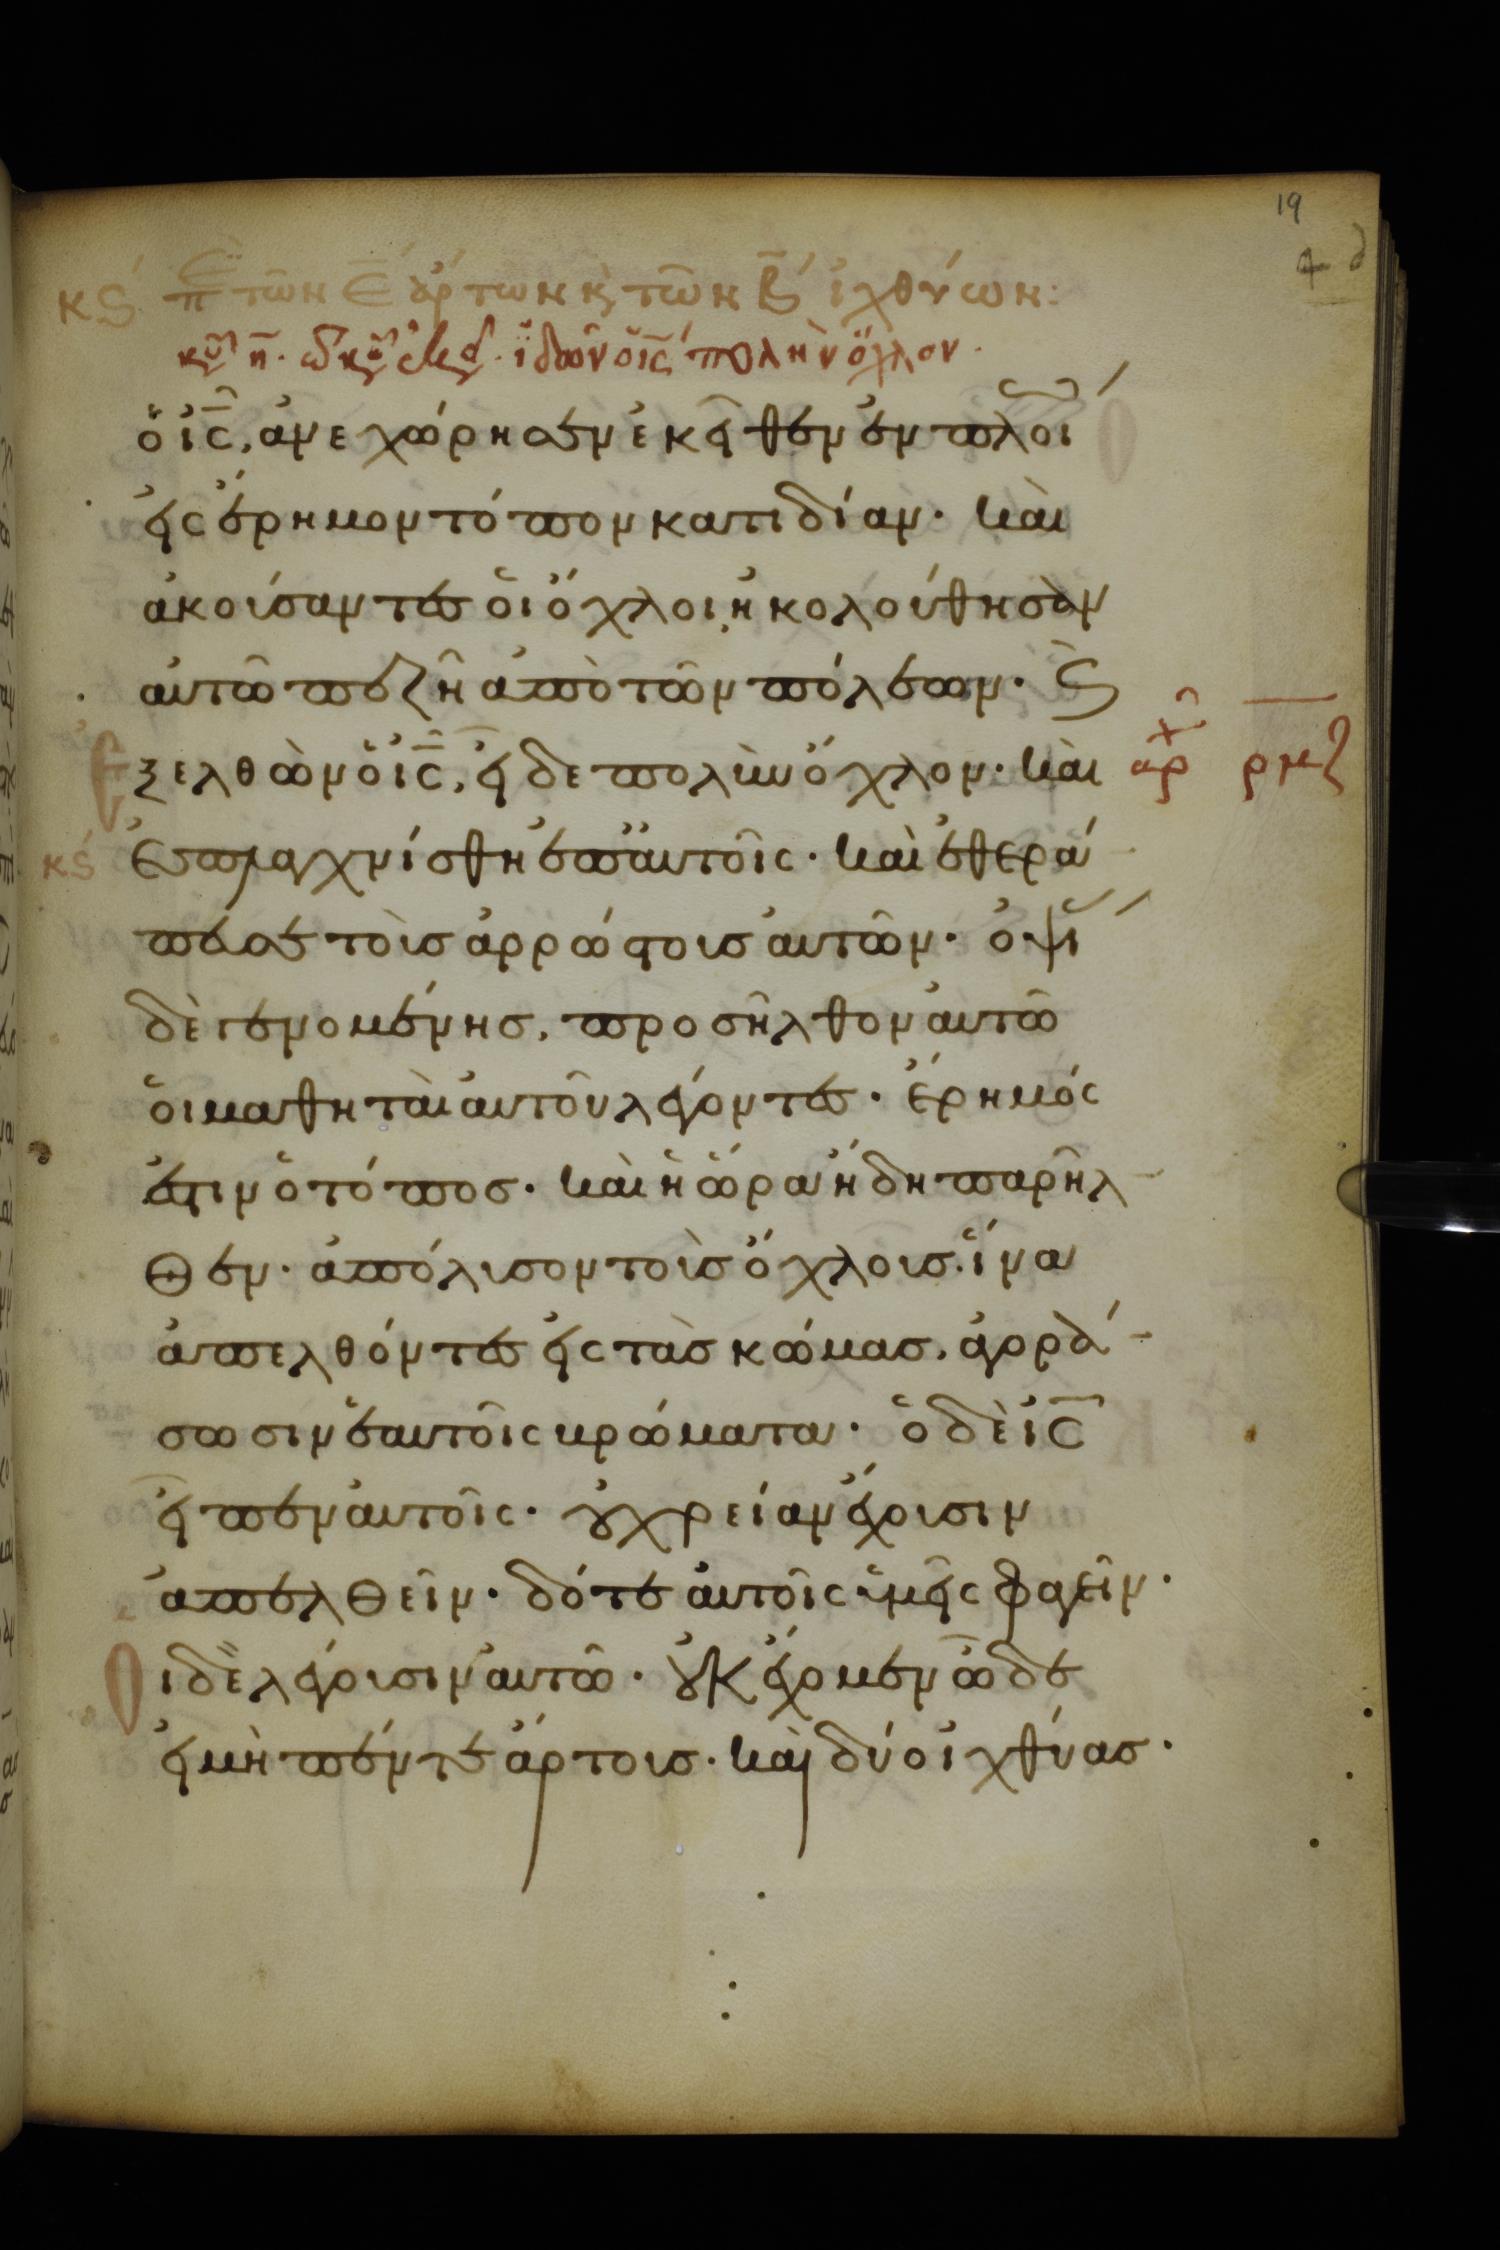 19
4 δ
κϛ πε τῶν ε ἄρτων κ τῶν β ἰχθύων:
ἰδὼν ὁ ις πολὴν ὄχλον.
ὁ ις, ἀνεχώρησεν ἐκεῖθεν ἐν πλοί
εἰς ἔρημον τόπον κατιδίαν. καὶ
ἀκούσαντες ὁι ὄχλοι, ἠκολούθησὰν
αὐτῶ πεζῆ ἀπὸ τῶν πόλεων. ϛ
ξελθὼν ὁ ις, εἶδε πολὺν ὄχλον. καὶ
αρχ ρμζ
κϛ
ἐσπλαγχνίσθη ἐπ αὐτοῖς. καὶ ἐθερά
πευσε τοὺσ ἀρρώστουσ αὐτῶν. ὀψί
δὲ γενομένησ, προσῆλθον αὐτῶ
ὁι μαθηταὶ αὐτοῦ λέγοντες. ἔρημός
ἐστιν ὁ τόποσ. καὶ ἡ ὥρα ἤδη παρῆλ
θεν. ἀπόλυσον τοὺσ ὄχλουσ. ἵνα
ἀπελθόντες εἰς τὰσ κώμασ, ἀγορά
σωσιν ἑαυτοῖς βρώματα. ὁ δὲ ις
εἶπεν αὐτοῖς. οὐ χρείαν ἔχουσιν
ἀπελθεῖν. δότε αὐτοῖς ὑμεῖς φαγεῖν.
Οι δὲ λέγουσιν αὐτῶ. οὐκ ἔχομεν ὧδε
εἰ μὴ πέντε ἄρτουσ. καὶ δύο ἰχθύασ.